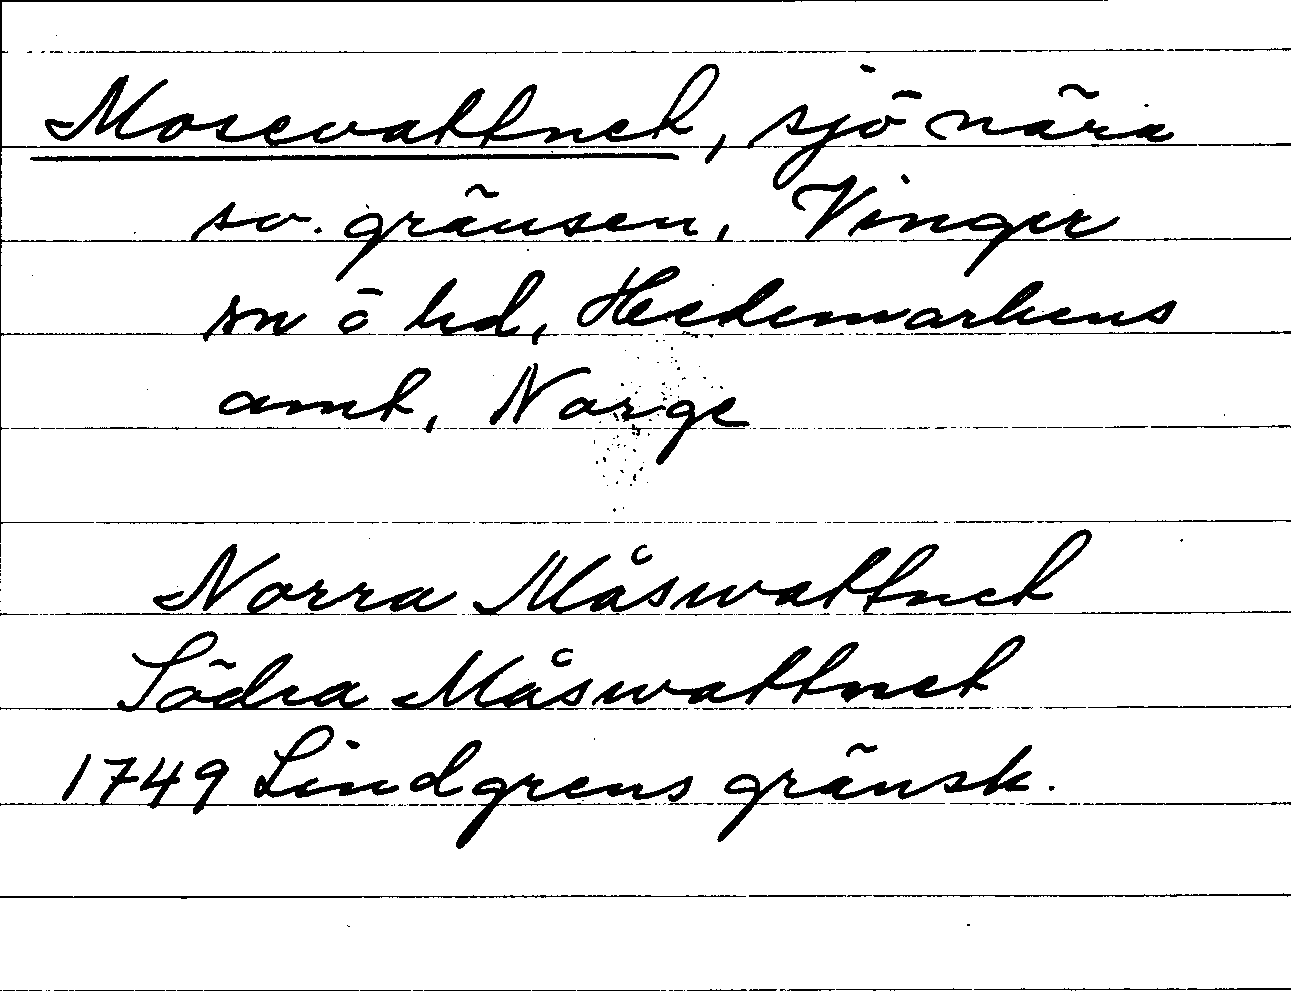 Mosevattnet, sjö nära
sv. gränsen, Vinger
sn ö hd, Hedemarkens
amt, Norge
Norra Måswattnet
Södra Måswattnet
1749 Lindgrens gränsk.